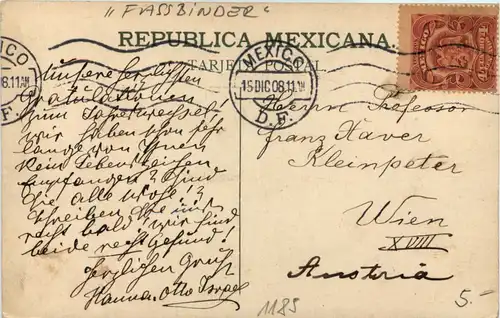 "FASSBINDER"
REPUBLICA MEXICANA.
TARJETA POSTAL
MEXICO
15 DIC 08. 11 AM
D.F.
MEXICO
Unsere herzlichen
Gratulationen
zum Jahreswechsel
wir haben schon sehr
lange von Ihnen
kein Lebenszeichen
empfangen? Sind
Sie alle wohl!?
Schreiben Sie nur
recht bald wir sind
beide recht gesund!
Herzlichen Gruß
Hanna, Otto Israel
Herrn Professor
Franz Xaver
Kleinpeter
Wien
XVIII
Austria
1185
5.-